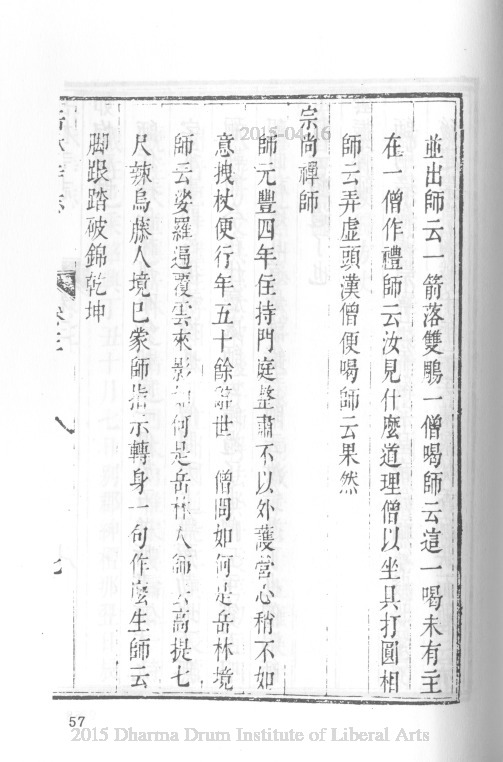 並出師云一箭落雙鵰一僧喝師云這一喝未有主
在一僧作禮師云汝見什麼道理僧以坐具打圓相
師云弄虛頭漢僧便喝師云果然
宗尚禪師
師元豐四年住持門庭整肅不以外護營心稍不如
意拽杖便行年五十餘辭世 僧問如何是岳林境
師云娑羅遍覆雲來影如何是岳林人師云高提七
尺辣烏藤人境已蒙師指示轉身一句作麼生師云
脚跟踏破錦乾坤
卷三
57
2015-04-16
2015 Dharma Drum Institute of Liberal Arts